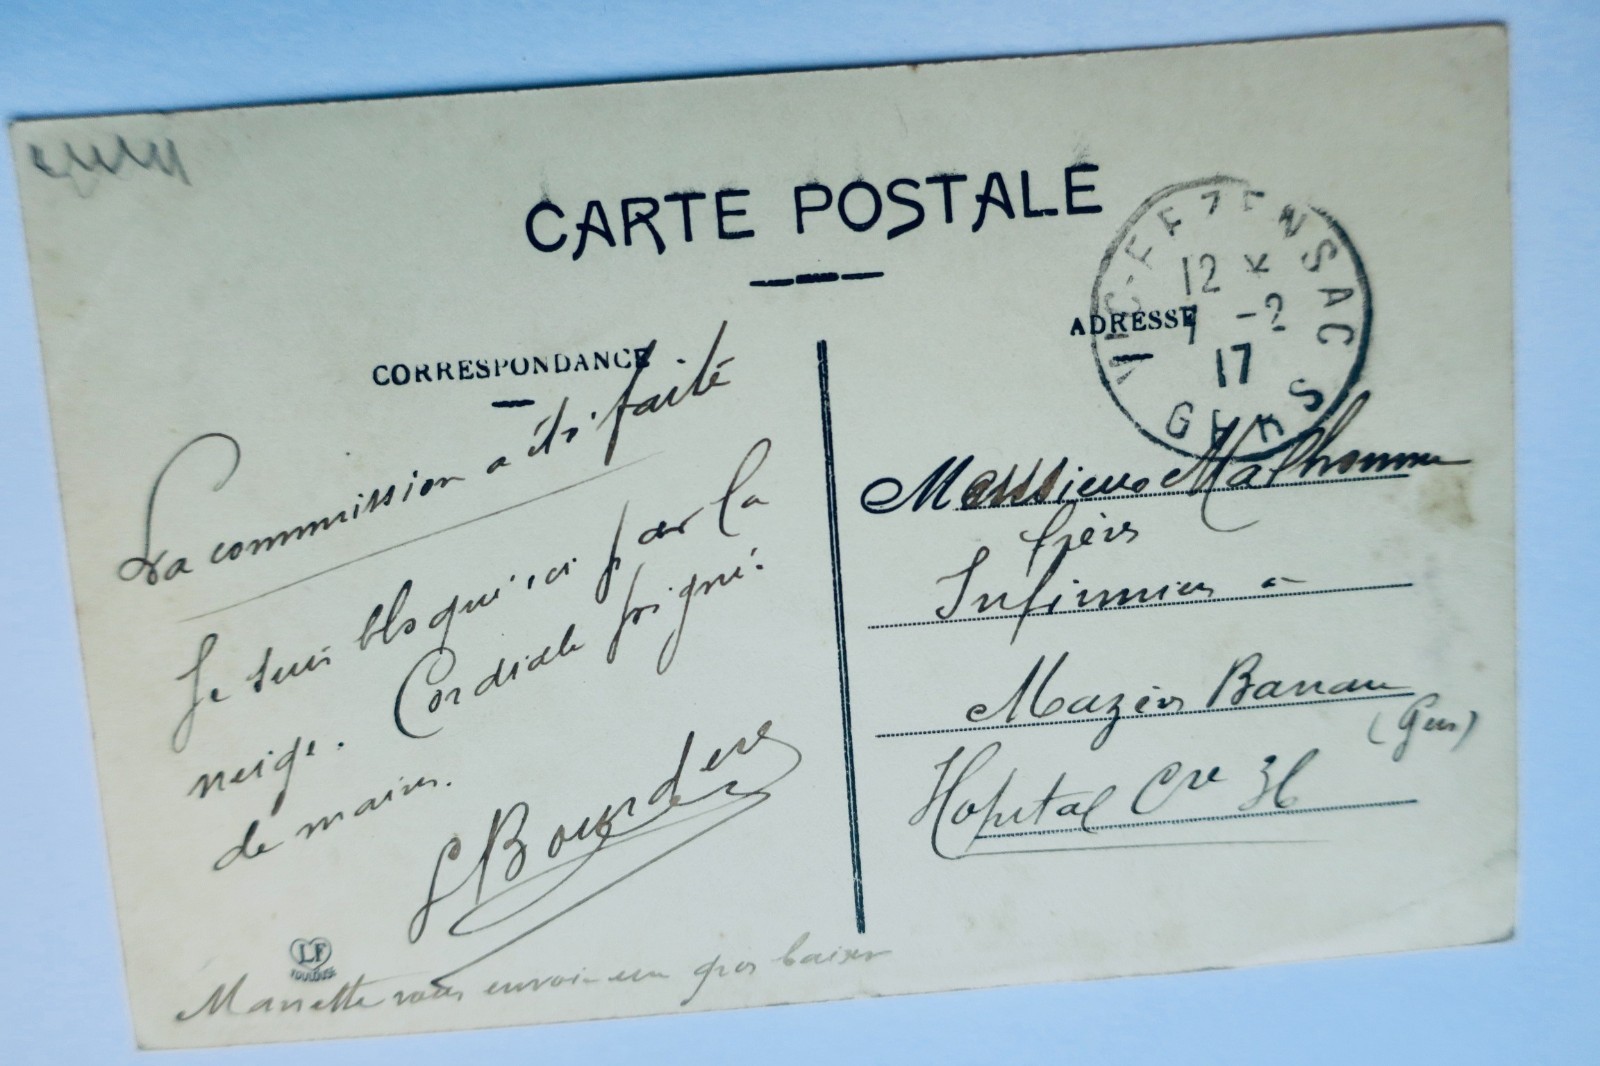 CARTE POSTALE
CORRESPONDANCE
La commission a été faite
Je suis bloqué ici par la
neige. Cordiale poignée
de mains.
Bourdere
LF
TOULOUSE
Manette vous envoie un gros baiser
ADRESSE
VIC-FEZENSAC
12 *
7 -2
17
GERS
Messieurs Malhomme
frères
Infirmiers à
Mazères Barran
(Gers)
Hopital Cre 36